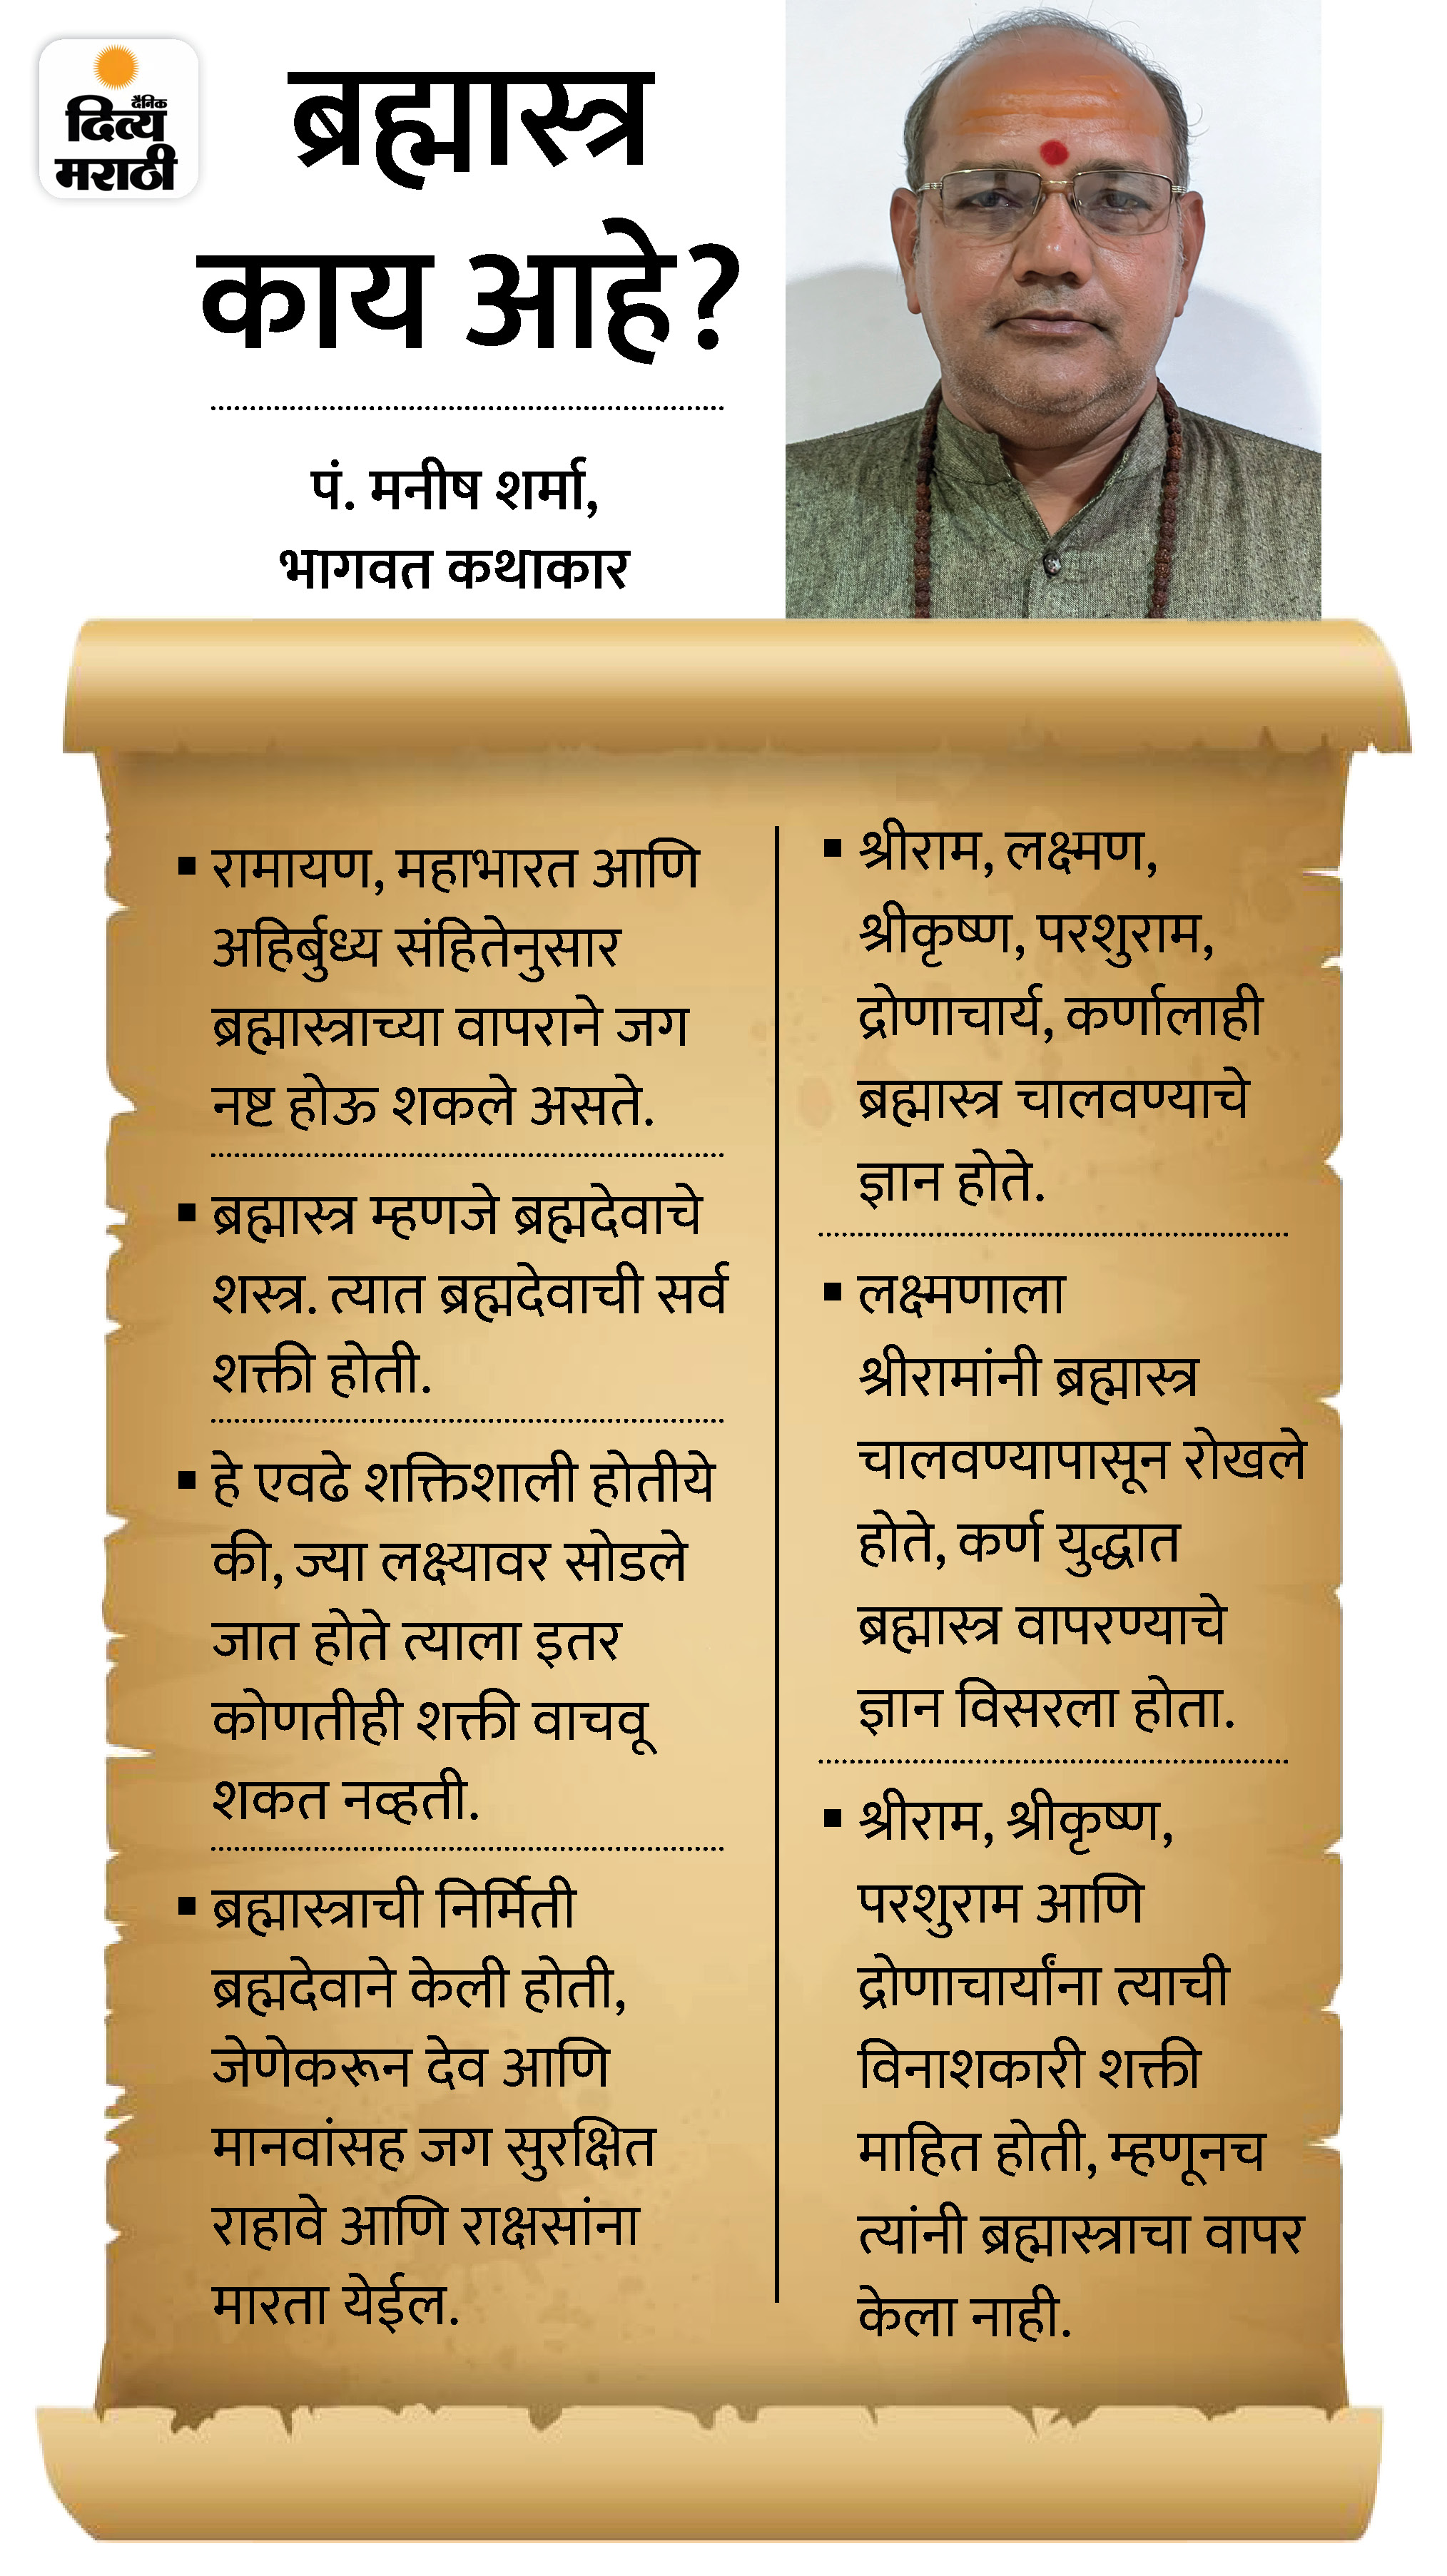 दैनिक
दिव्य
मराठी
ब्रह्मास्त्र
काय आहे?
पं. मनीष शर्मा,
भागवत कथाकार
▪ रामायण, महाभारत आणि
अहिर्बुध्य संहितेनुसार
ब्रह्मास्त्राच्या वापराने जग
नष्ट होऊ शकले असते.
▪ ब्रह्मास्त्र म्हणजे ब्रह्मदेवाचे
शस्त्र. त्यात ब्रह्मदेवाची सर्व
शक्ती होती.
▪ हे एवढे शक्तिशाली होतीये
की, ज्या लक्ष्यावर सोडले
जात होते त्याला इतर
कोणतीही शक्ती वाचवू
शकत नव्हती.
▪ ब्रह्मास्त्राची निर्मिती
ब्रह्मदेवाने केली होती,
जेणेकरून देव आणि
मानवांसह जग सुरक्षित
राहावे आणि राक्षसांना
मारता येईल.
▪ श्रीराम, लक्ष्मण,
श्रीकृष्ण, परशुराम,
द्रोणाचार्य, कर्णालाही
ब्रह्मास्त्र चालवण्याचे
ज्ञान होते.
▪ लक्ष्मणाला
श्रीरामांनी ब्रह्मास्त्र
चालवण्यापासून रोखले
होते, कर्ण युद्धात
ब्रह्मास्त्र वापरण्याचे
ज्ञान विसरला होता.
▪ श्रीराम, श्रीकृष्ण,
परशुराम आणि
द्रोणाचार्यांना त्याची
विनाशकारी शक्ती
माहित होती, म्हणूनच
त्यांनी ब्रह्मास्त्राचा वापर
केला नाही.